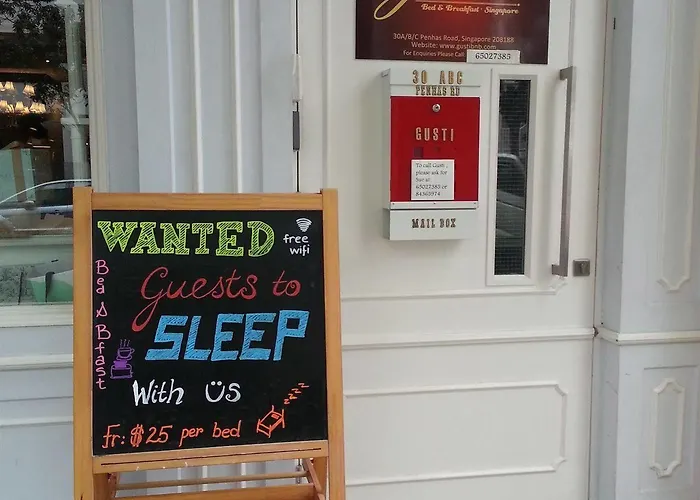 Bed & Breakfast · Singapore
30A/B/C Penhas Road, Singapore 208188
Website: www.gustibnb.com
For Enquiries Please Call: 65027385
30 ABC
PENHAS RD
GUSTI
To call Gusti,
please ask for
Sue at
65027385 or
MAIL BOX
WANTED
free
wifi
Bed & Bfast
Guests to
SLEEP
With Us
Fr: $25 per bed
zzzz